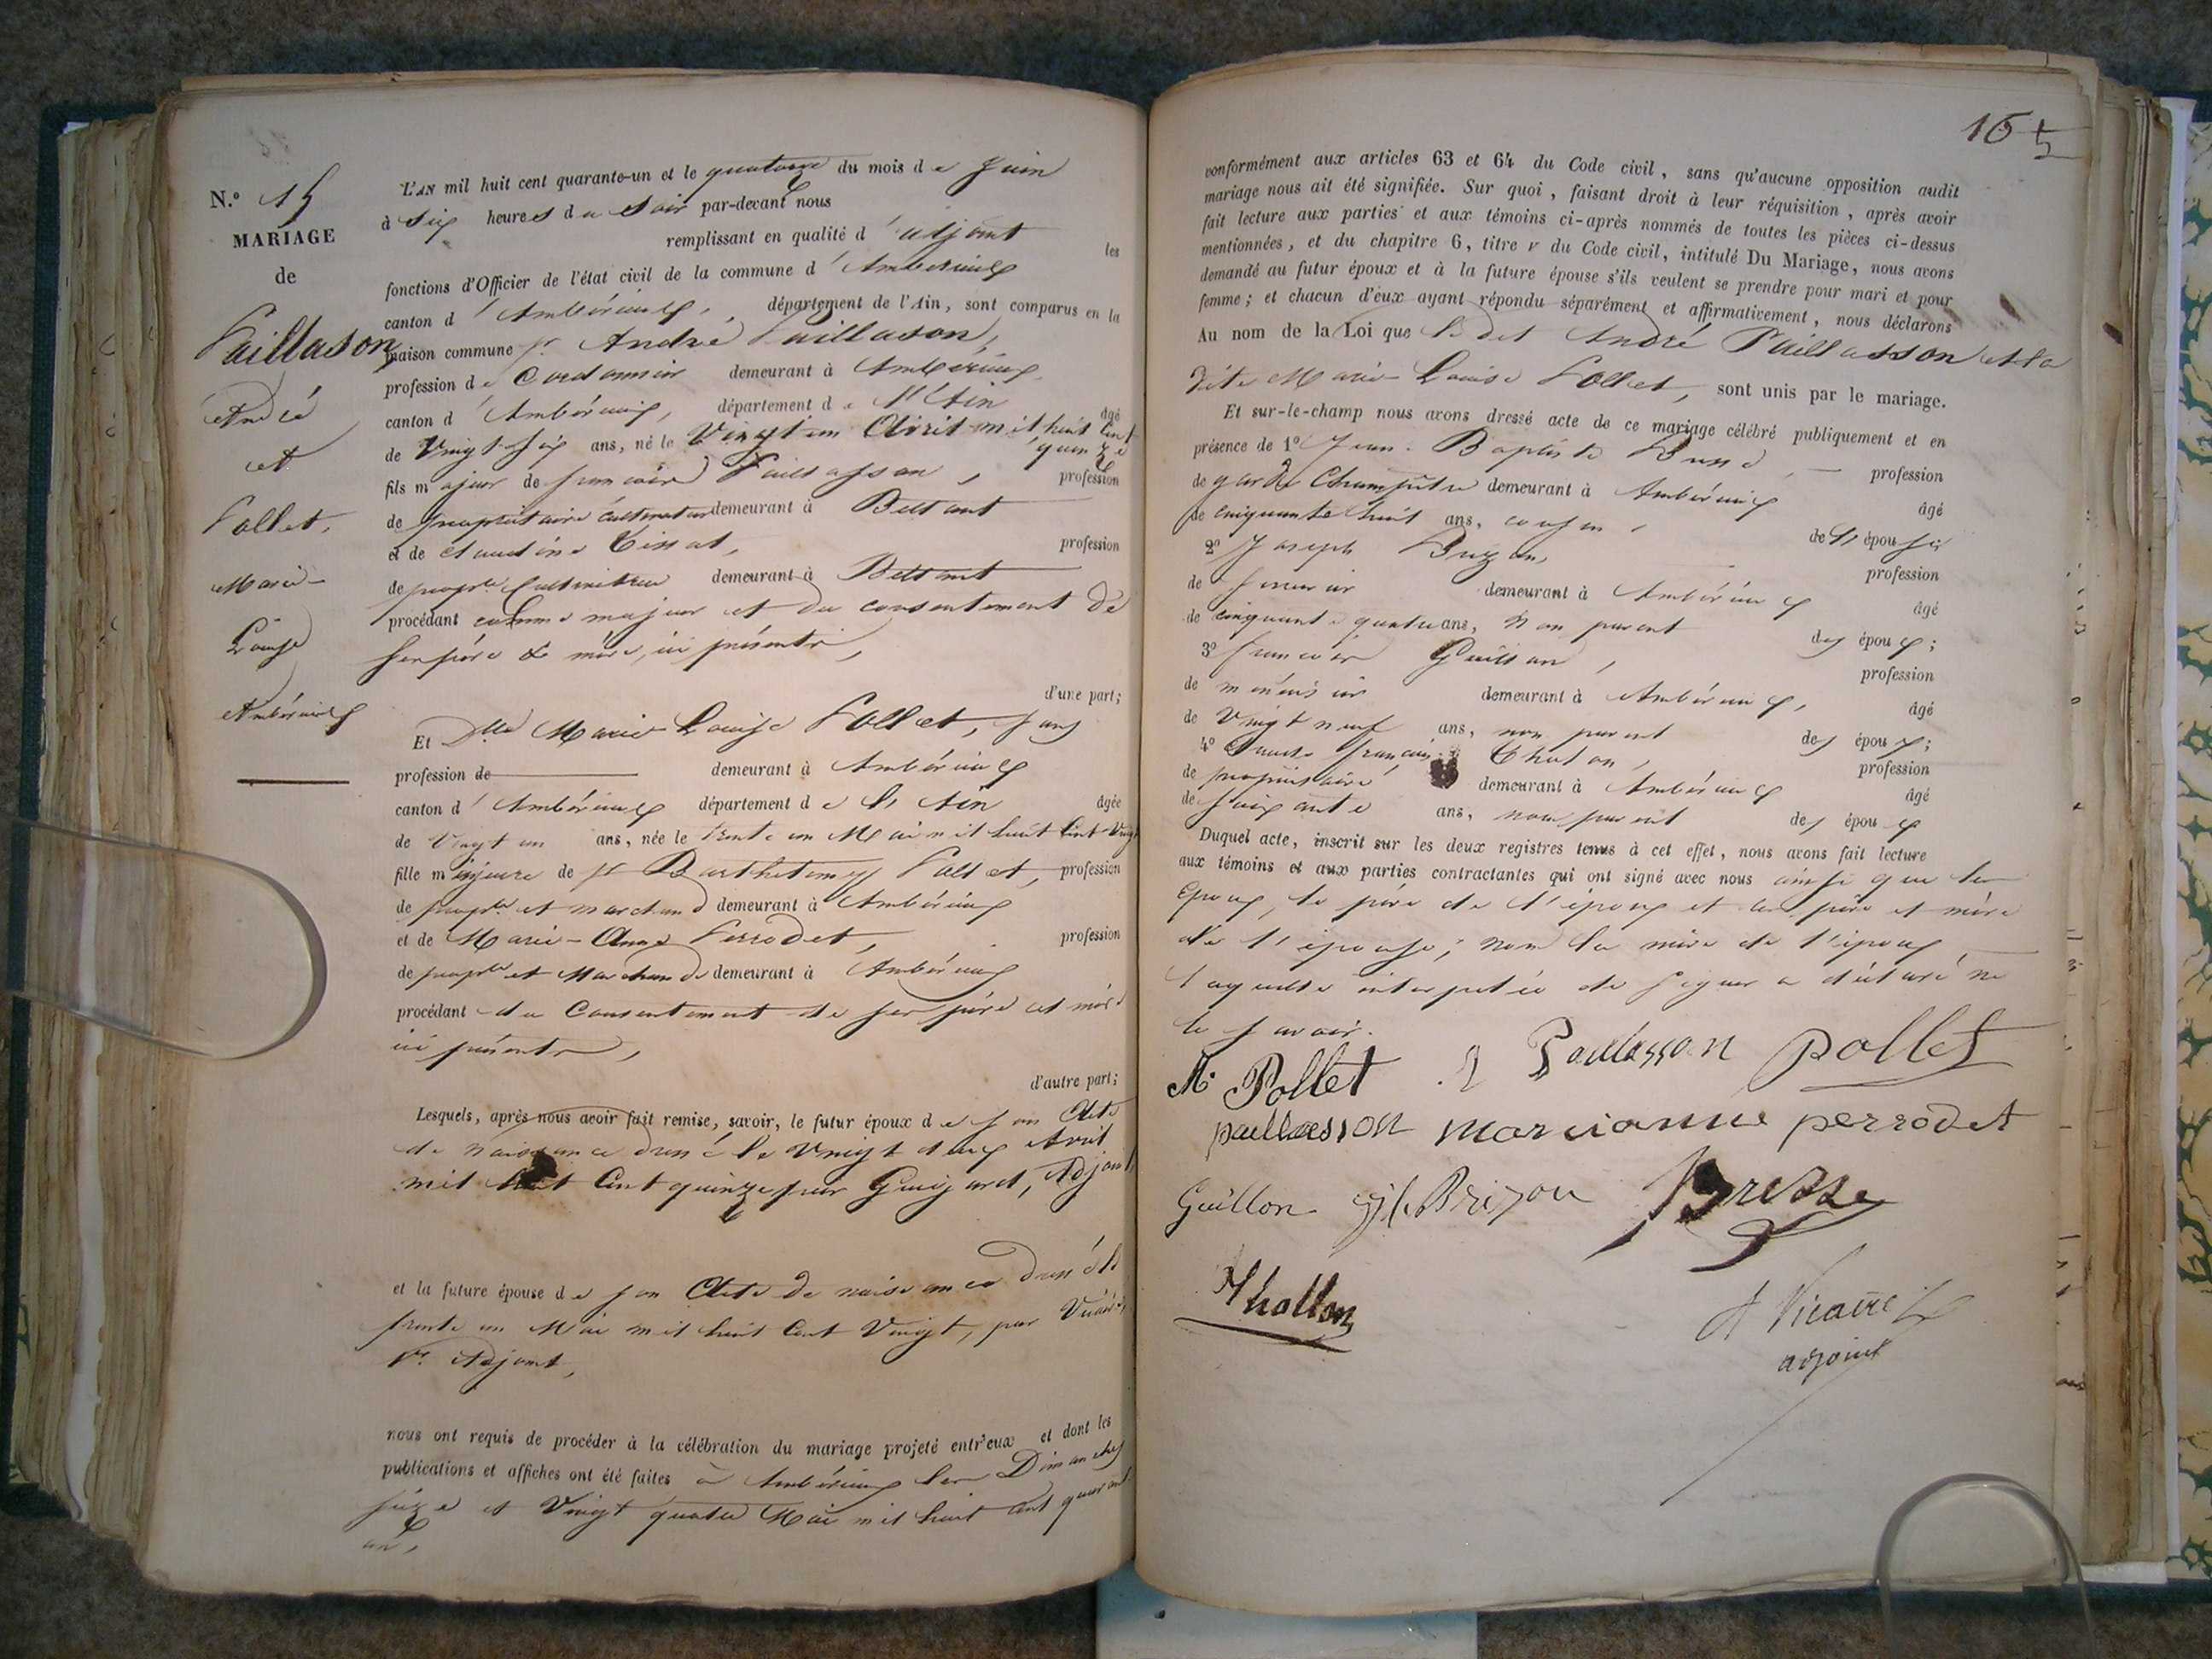 N.º 15
MARIAGE
de
Paillason
André
et
Pollet,
Marie-
Louise
Ambérieux
L'AN mil huit cent quarante-un et le quatorze du mois de Juin
à Six heures du Soir par-devant nous
remplissant en qualité d'adjoint les
fonctions d'Officier de l'état civil de la commune d'Ambérieux
canton d'Ambérieux, département de l'Ain, sont comparus en la
maison commune Sr André Paillason,
profession de Cordonnier demeurant à Ambérieux
canton d'Ambérieux, département de l'Ain âgé
de Vingt-six ans, né le Vingt un Avril mil huit cent quinze
fils majeur de françois Paillasson, profession
de propriétaire cultivateur demeurant à Bettant
et de Claudine Tissot, profession
de propre. Cultivatrice demeurant à Bettant
procédant comme majeur et du consentement de
ses père & mère, ici présents,
d'une part;
Et Dlle Marie Louise Pollet, sans
profession de demeurant à Ambérieux
canton d'Ambérieux département de l'Ain âgée
de Vingt un ans, née le trente un Mai mil huit cent Vingt
fille majeure de Sr Barthelemy Pollet, profession
de propre. et marchand demeurant à Ambérieux
et de Marie-Anne Perrodet, profession
de propre et Marchande demeurant à Ambérieux
procédant du Consentement de ses père et mère
ici présents,
d'autre part;
Lesquels, après nous avoir fait remise, savoir, le futur époux de son Acte
de naissance dressé le Vingt deux Avril
mil huit Cent quinze par Guigard, Adjoint,
et la future épouse de son Acte de naissance dressé le
trente un Mai mil huit Cent Vingt, par
Adjoint,
nous ont requis de procéder à la célébration du mariage projeté entr'eux et dont les
publications et affiches ont été faites à Ambérieux les Dimanches
seize et Vingt quatre Mai mil huit cent quarante
un,
165
conformément aux articles 63 et 64 du Code civil, sans qu'aucune opposition audit
mariage nous ait été signifiée. Sur quoi, faisant droit à leur réquisition, après avoir
fait lecture aux parties et aux témoins ci-après nommés de toutes les pièces ci-dessus
mentionnées, et du chapitre 6, titre v du Code civil, intitulé Du Mariage, nous avons
demandé au futur époux et à la future épouse s'ils veulent se prendre pour mari et pour
femme; et chacun d'eux ayant répondu séparément et affirmativement, nous déclarons
Au nom de la Loi que le dit André Paillasson et la
dite Marie-Louise Pollet, sont unis par le mariage.
Et sur-le-champ nous avons dressé acte de ce mariage célébré publiquement et en
présence de 1º Jean-Baptiste Bresse, profession
de garde Champêtre demeurant à Ambérieux âgé
de cinquante huit ans, cousin de l'épouse
2º Joseph profession
de demeurant à Ambérieux âgé
de cinquante quatre ans, non parent des époux;
3º françois Guillon, profession
de menuisier demeurant à Ambérieux, âgé
de Vingt neuf ans, non parent des époux;
4º Claude françois Tholon, profession
de propriétaire demeurant à Ambérieux âgé
de soixante ans, non parent des époux
Duquel acte, inscrit sur les deux registres tenus à cet effet, nous avons fait lecture
aux témoins et aux parties contractantes qui ont signé avec nous ainsi que les
époux, le père de l'époux et les père et mère
de l'épouse; non la mère de l'époux
laquelle interpelée de signer a déclaré ne
le savoir.
M. Pollet Paillasson pollet
paillasson marianne perrodet
Guillon Brizou Bresse
Thollon
A Vicaire
adjoint